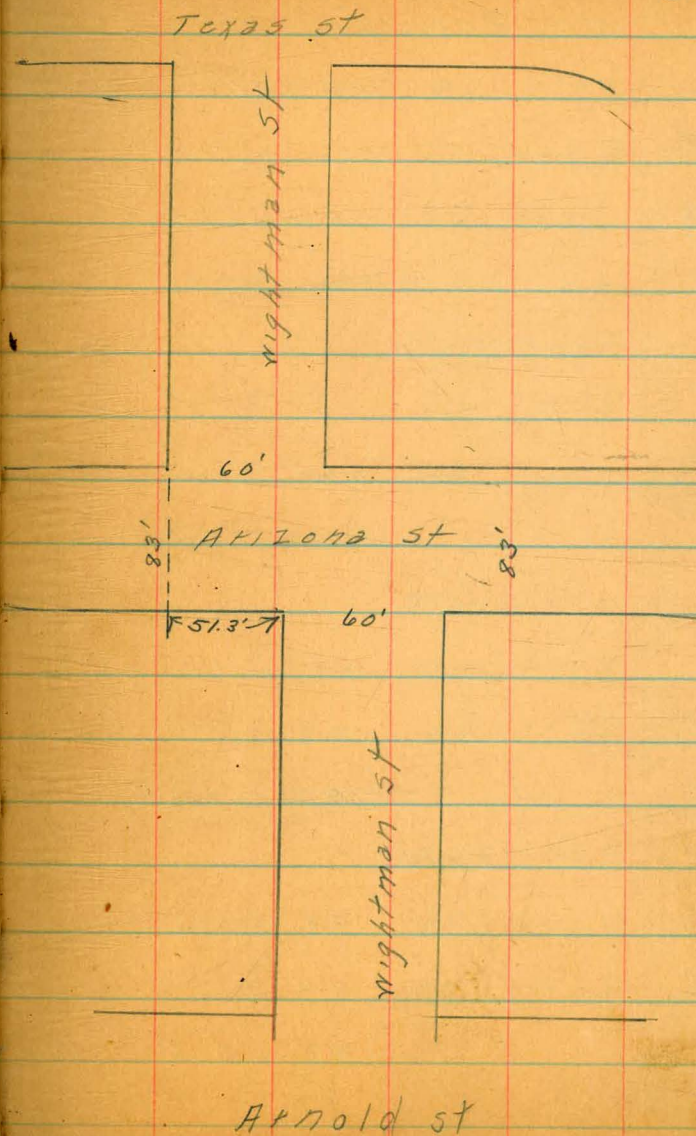 Texas st
Wightman st
60'
83'
Arizona st
83'
51.3'
60'
Wightman st
Arnold st